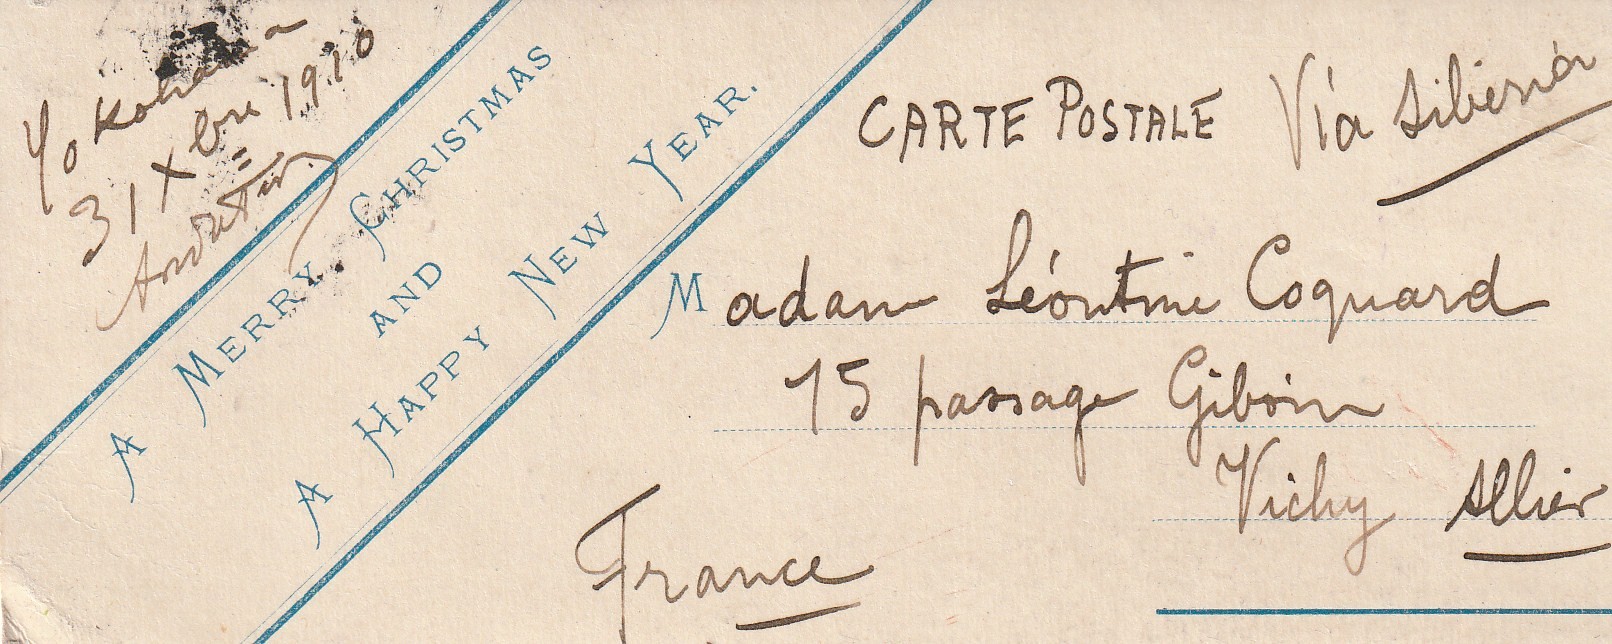 Yokohama
31 Xbre 1910
A MERRY CHRISTMAS
AND
A HAPPY NEW YEAR.
CARTE POSTALE Via Sibéria
Madame Léontine Coquard
15 passage Giboin
Vichy Allier
France